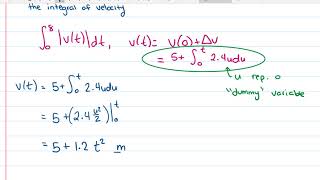 the integral of velocity
∫₀⁸ |v(t)| dt, v(t) = v(0) + Δv
= 5 + ∫₀ᵗ 2.4u du
u rep. a
"dummy" variable
v(t) = 5 + ∫₀ᵗ 2.4u du
= 5 + (2.4 u²/2) |₀ᵗ
= 5 + 1.2 t² m